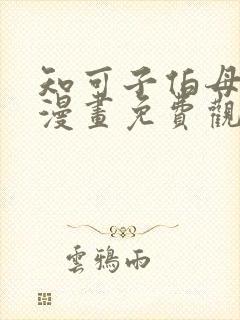 知可子伯母
漫畫免費觀
雲鴉雨